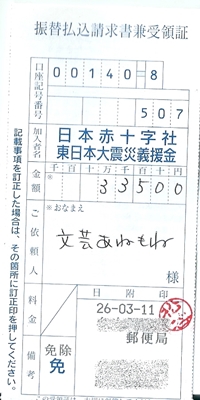 振替払込請求書兼受領証
口座記号番号
00140 8
507
加入者名
日本赤十字社
東日本大震災義援金
金額
千百十万千百十円
※
33500
ご依頼人
※おなまえ
文芸あねもね
様
料金
日附印
26-03-11
郵便局
備考
免除
免
記載事項を訂正した場合は、その箇所に訂正印を押してください。